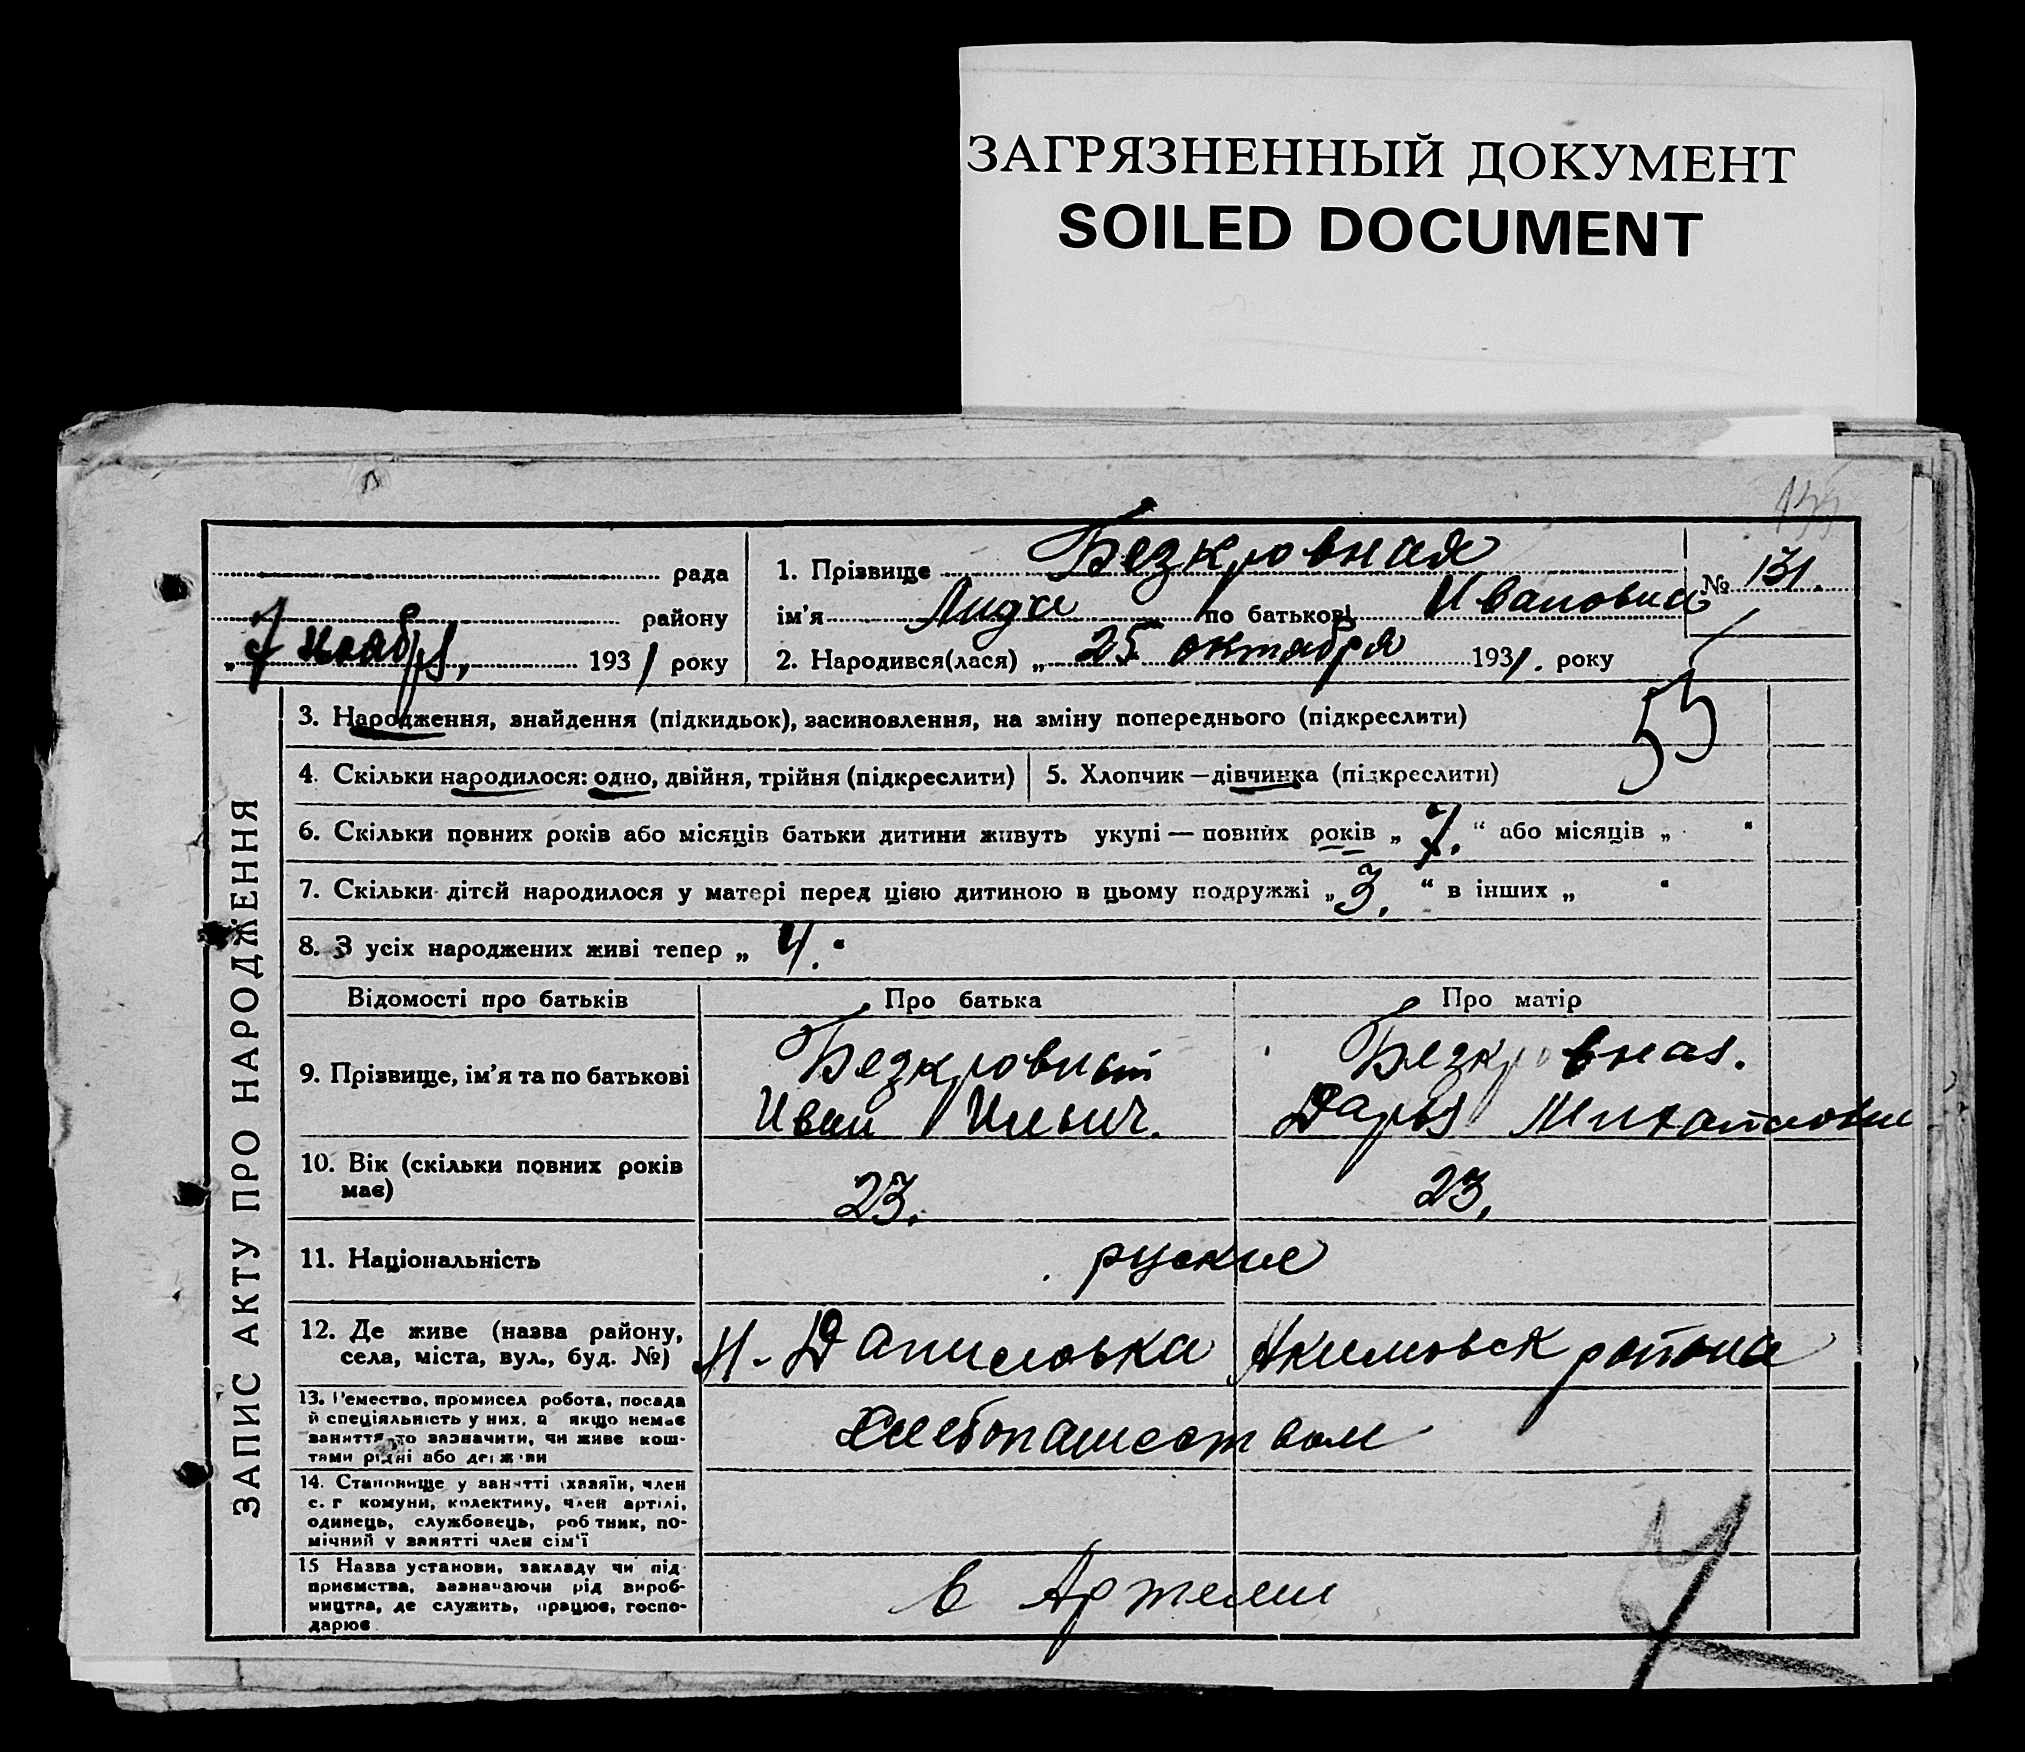 ЗАГРЯЗНЕННЫЙ ДОКУМЕНТ
SOILED DOCUMENT
рада
району
„ 7 ноября, 1931 року
1. Прізвище Безкровная
ім'я Лида по батькові Ивановна
2. Народився(лася) „ 25 октября 1931. року
№ 131.
55
ЗАПИС АКТУ ПРО НАРОДЖЕННЯ
3. Народження, знайдення (підкидьок), засиновлення, на зміну попереднього (підкреслити)
4. Скільки народилося: одно, двійня, трійня (підкреслити)
5. Хлопчик — дівчинка (підкреслити)
6. Скільки повних років або місяців батьки дитини живуть укупі — повних років „ 7. “ або місяців „ “
7. Скільки дітей народилося у матері перед цією дитиною в цьому подружжі „ 3. “ в інших „ “
8. З усіх народжених живі тепер „ 4. “
Відомості про батьків Про батька Про матір
9. Прізвище, ім'я та по батькові
Безкровный
Иван Ильич.
Безкровная.
Дарья Михайловна
10. Вік (скільки повних років
має)
23.
23,
11. Національність
руские
12. Де живе (назва району,
села, міста, вул., буд. №)
Н. Даниловка Акимовск района
13. Ремество, промисел робота, посада
й спеціяльність у них, а якщо немає
заняття то зазначити, чи живе кош-
тами рідні або держави
хлебопашеством
14. Становище у занятті (хазяїн, член
с. г комуни, колективу, член артілі,
одинець, службовець, робітник, по-
мічний у занятті член сім'ї
15 Назва установи, закладу чи під-
приємства, зазначаючи рід вироб-
ництва, де служить, працює, госпо-
дарює
в Артели